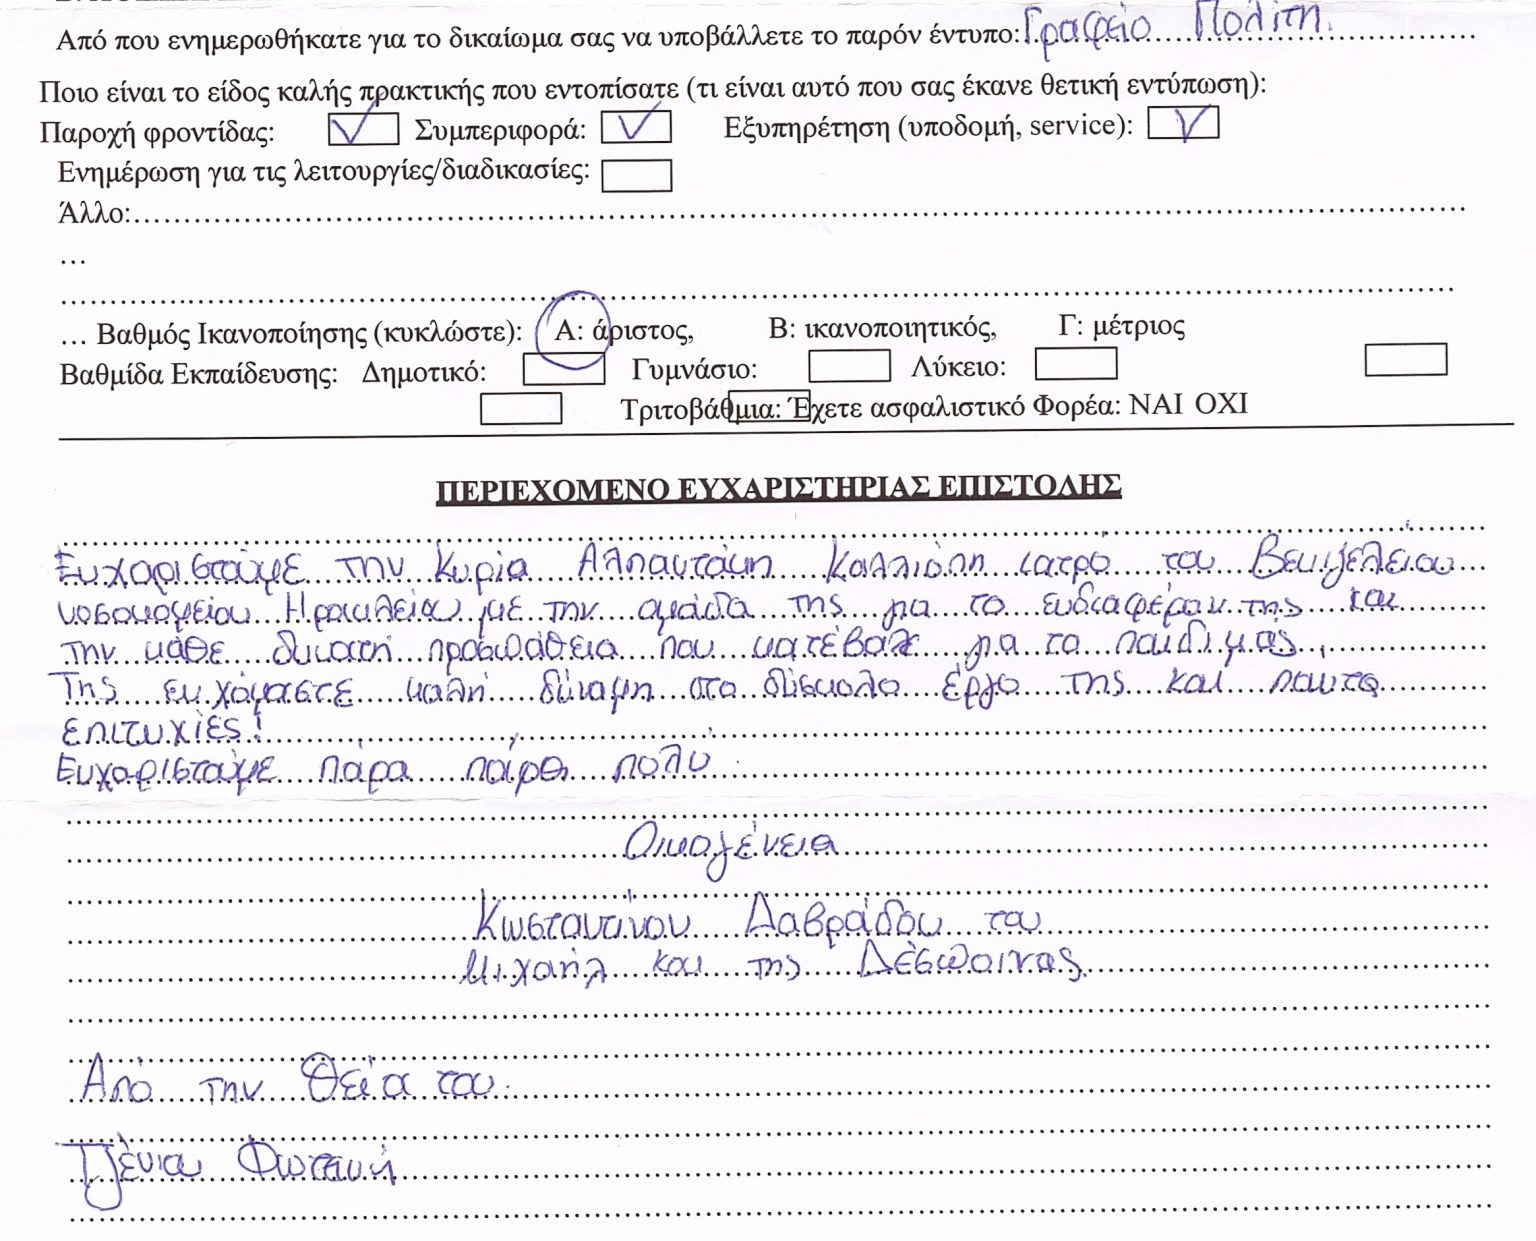 Από που ενημερωθήκατε για το δικαίωμα σας να υποβάλλετε το παρόν έντυπο: Γραφείο Πολίτη.
Ποιο είναι το είδος καλής πρακτικής που εντοπίσατε (τι είναι αυτό που σας έκανε θετική εντύπωση):
Παροχή φροντίδας: Συμπεριφορά: Εξυπηρέτηση (υποδομή, service):
Ενημέρωση για τις λειτουργίες/διαδικασίες:
Άλλο:
…
… Βαθμός Ικανοποίησης (κυκλώστε): Α: άριστος, Β: ικανοποιητικός, Γ: μέτριος
Βαθμίδα Εκπαίδευσης: Δημοτικό: Γυμνάσιο: Λύκειο:
Τριτοβάθμια: Έχετε ασφαλιστικό Φορέα: ΝΑΙ ΟΧΙ
ΠΕΡΙΕΧΟΜΕΝΟ ΕΥΧΑΡΙΣΤΗΡΙΑΣ ΕΠΙΣΤΟΛΗΣ
Ευχαριστούμε την Κυρία Αλπαντάκη Καλλιόπη ιατρό του Βενιζελείου
νοσοκομείου Ηρακλείου με την ομάδα της για το ενδιαφέρον της και
την κάθε δυνατή προσπάθεια που κατέβαλε για το παιδί μας.
Της ευχόμαστε καλή δύναμη στο δύσκολο έργο της και παντα
επιτυχίες!
Ευχαριστούμε πάρα πάρα πολύ.
Οικογένεια
Κωσταντίνου Δαβράδου του
Μιχαήλ και της Δέσποινας
Από την Θεία του.
Τζένια Φωτεινή